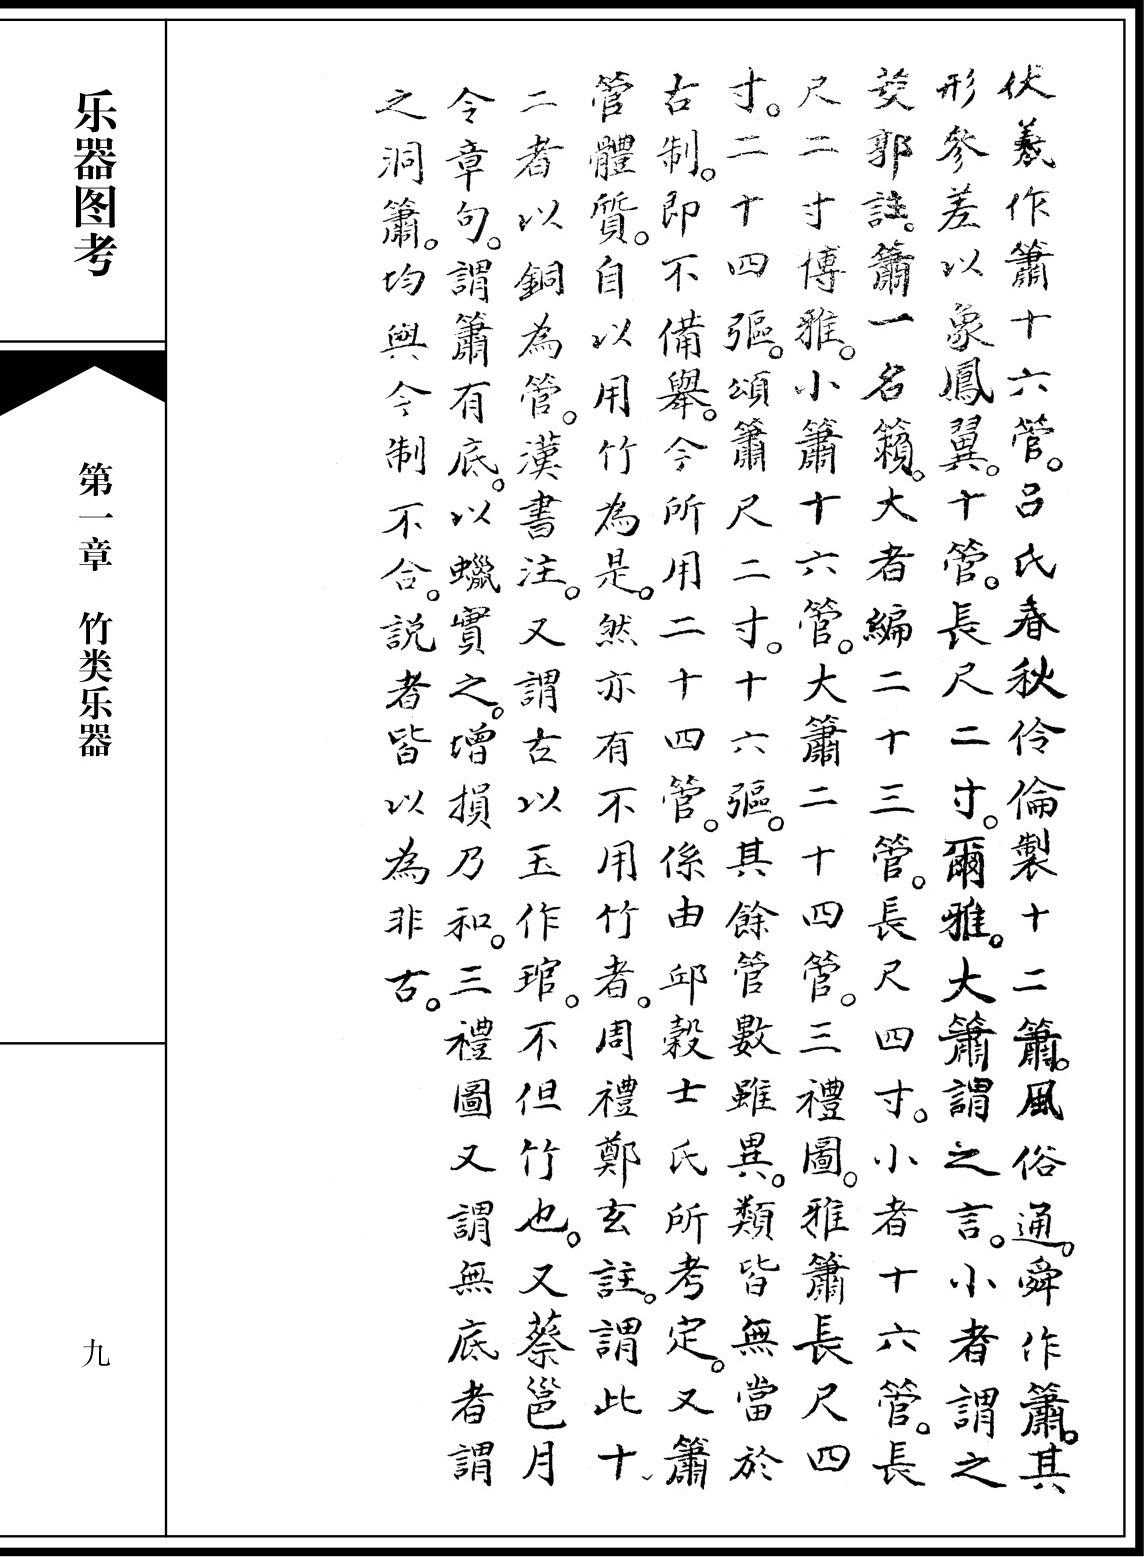 伏羲作簫十六管。呂氏春秋伶倫製十二簫。風俗通。舜作簫。其
形參差以象鳳翼。十管。長尺二寸。爾雅。大簫謂之言。小者謂之
筊郭註。簫一名籟。大者編二十三管。長尺四寸。小者十六管。長
尺二寸博雅。小簫十六管。大簫二十四管。三禮圖。雅簫長尺四
寸。二十四彄。頌簫尺二寸。十六彄。其餘管數雖異。類皆無當於
古制。即不備舉。今所用二十四管。係由邱穀士氏所考定。又簫
管體質。自以用竹為是。然亦有不用竹者。周禮鄭玄註。謂此十
二者以銅為管。漢書注。又謂古以玉作琯。不但竹也。又蔡邕月
令章句。謂簫有底。以蠟實之。增損乃和。三禮圖又謂無底者謂
之洞簫。均與今制不合。説者皆以為非古。
乐器图考
第一章 竹类乐器
九